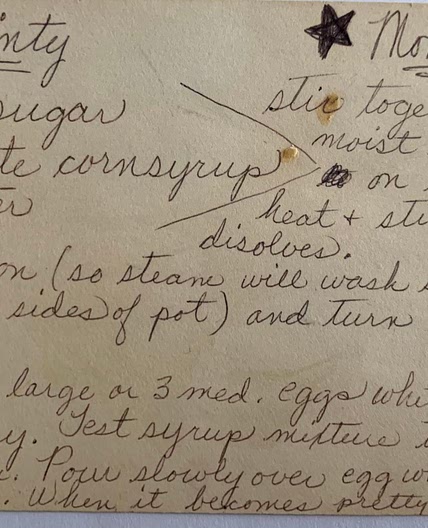 inty ★ Mo
sugar stir toge
te cornsyrup moist
er on
heat + sti
disolves.
on (so steam will wash s
sides of pot) and turn
large or 3 med. eggs whi
y. Test syrup mixture
. Pour slowly over egg w
. When it becomes pretty